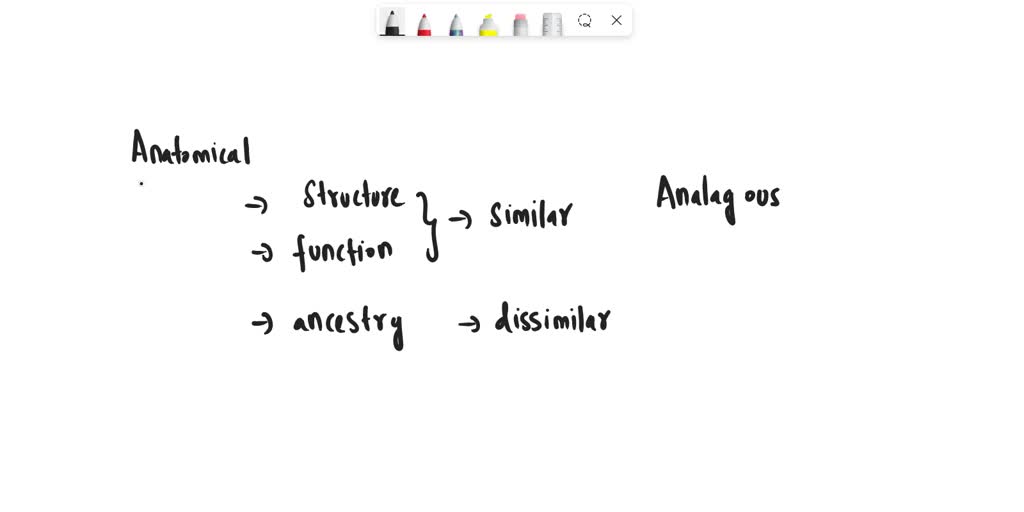 Anatomical
→ Structure
→ function
} → similar
Analag ous
→ ancestry → dissimilar